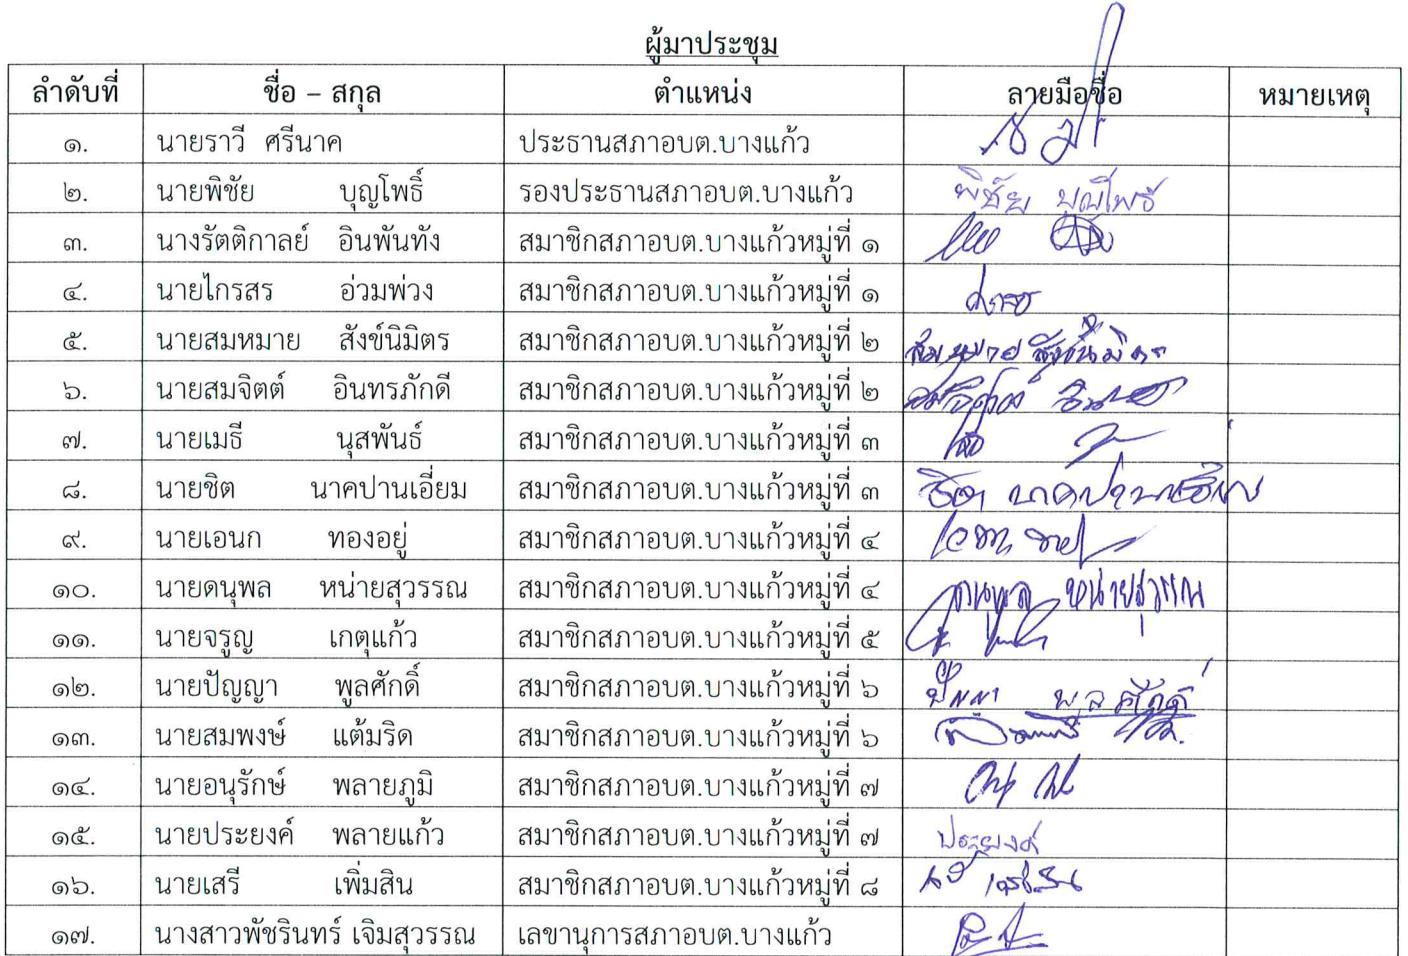 ผู้มาประชุม
ลำดับที่ ชื่อ – สกุล ตำแหน่ง ลายมือชื่อ หมายเหตุ
๑. นายราวี ศรีนาค ประธานสภาอบต.บางแก้ว
๒. นายพิชัย บุญโพธิ์ รองประธานสภาอบต.บางแก้ว พิชัย บุญโพธิ์
๓. นางรัตติกาลย์ อินพันทัง สมาชิกสภาอบต.บางแก้วหมู่ที่ ๑
๔. นายไกรสร อ่วมพ่วง สมาชิกสภาอบต.บางแก้วหมู่ที่ ๑
๕. นายสมหมาย สังข์นิมิตร สมาชิกสภาอบต.บางแก้วหมู่ที่ ๒ สมหมาย สังข์นิมิตร
๖. นายสมจิตต์ อินทรภักดี สมาชิกสภาอบต.บางแก้วหมู่ที่ ๒
๗. นายเมธี นุสพันธ์ สมาชิกสภาอบต.บางแก้วหมู่ที่ ๓
๘. นายชิต นาคปานเอี่ยม สมาชิกสภาอบต.บางแก้วหมู่ที่ ๓ ชิต นาคปานเอี่ยม
๙. นายเอนก ทองอยู่ สมาชิกสภาอบต.บางแก้วหมู่ที่ ๔
๑๐. นายดนุพล หน่ายสุวรรณ สมาชิกสภาอบต.บางแก้วหมู่ที่ ๔ ดนุพล หน่ายสุวรรณ
๑๑. นายจรูญ เกตุแก้ว สมาชิกสภาอบต.บางแก้วหมู่ที่ ๕
๑๒. นายปัญญา พูลศักดิ์ สมาชิกสภาอบต.บางแก้วหมู่ที่ ๖ ปัญญา พูลศักดิ์
๑๓. นายสมพงษ์ แต้มริด สมาชิกสภาอบต.บางแก้วหมู่ที่ ๖
๑๔. นายอนุรักษ์ พลายภูมิ สมาชิกสภาอบต.บางแก้วหมู่ที่ ๗
๑๕. นายประยงค์ พลายแก้ว สมาชิกสภาอบต.บางแก้วหมู่ที่ ๗ ประยงค์
๑๖. นายเสรี เพิ่มสิน สมาชิกสภาอบต.บางแก้วหมู่ที่ ๘
๑๗. นางสาวพัชรินทร์ เจิมสุวรรณ เลขานุการสภาอบต.บางแก้ว